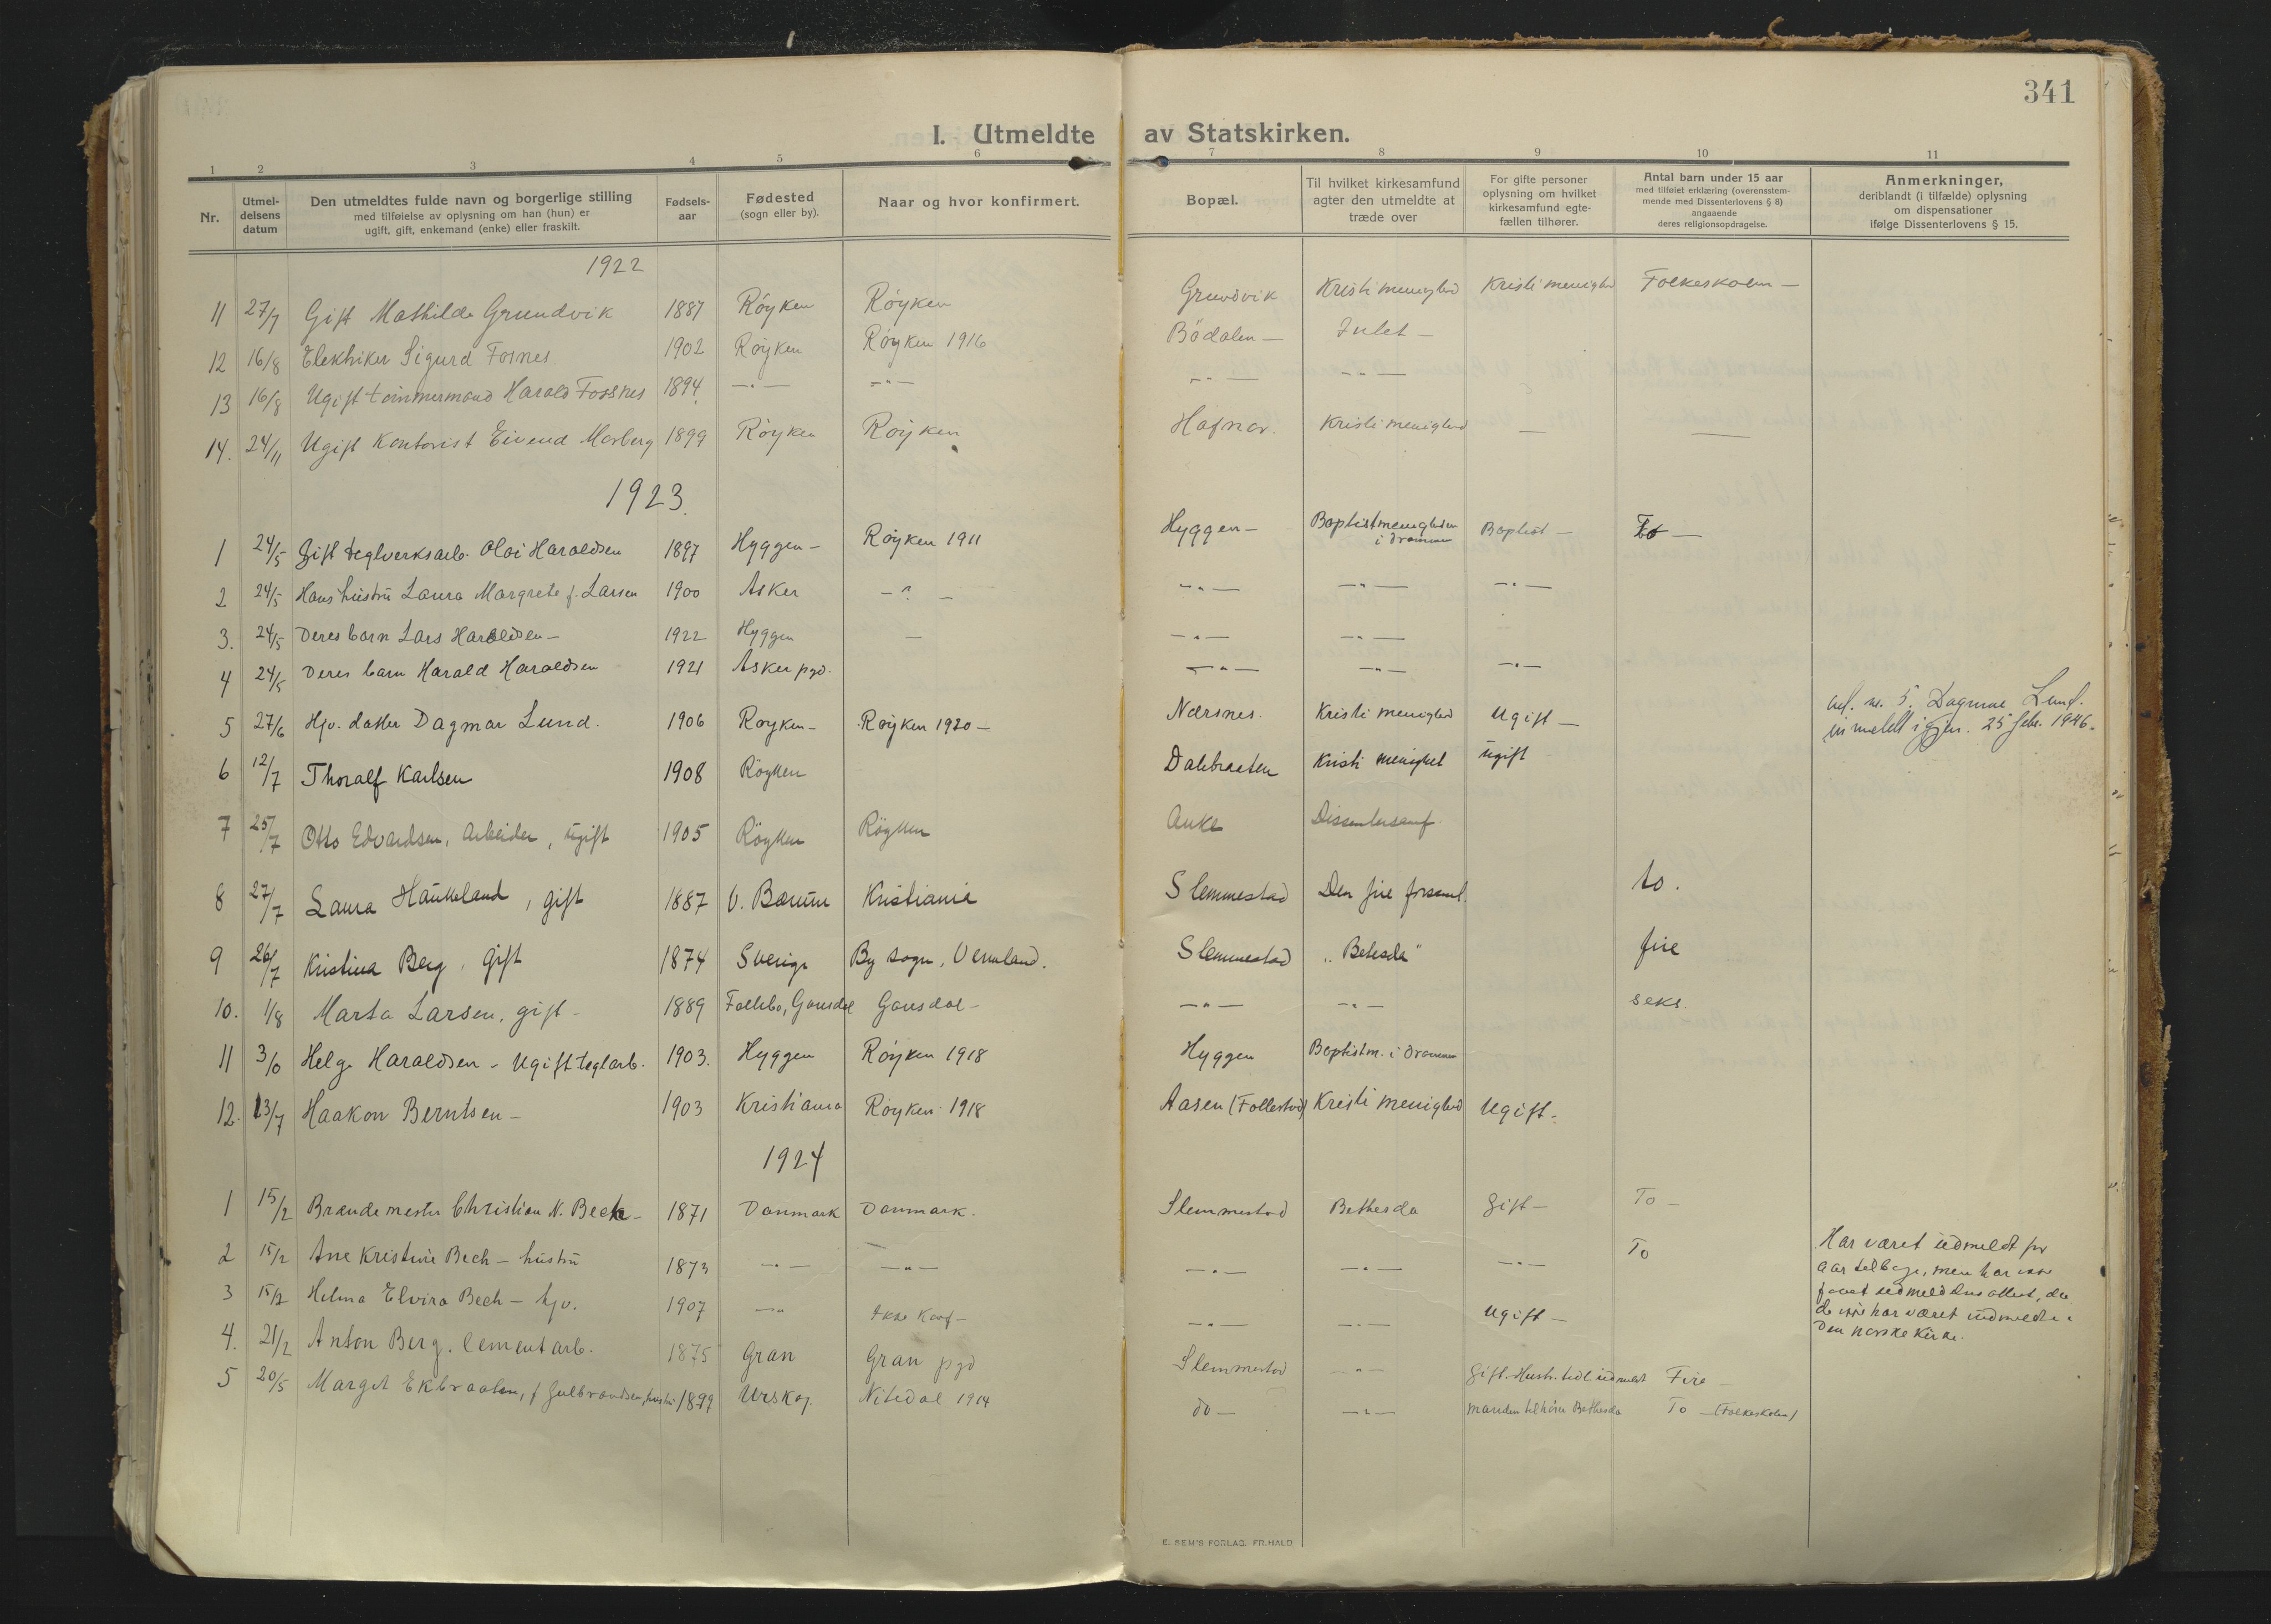 341
I. Utmeldte av Statskirken.
1 2 3 4 5 6 7 8 9 10 11
Nr.
Utmel-
delsens
datum
Den utmeldtes fulde navn og borgerlige stilling
med tilføielse av oplysning om han (hun) er
ugift, gift, enkemand (enke) eller fraskilt.
Fødsels-
aar
Fødested
(sogn eller by).
Naar og hvor konfirmert.
Bopæl.
Til hvilket kirkesamfund
agter den utmeldte at
træde over
For gifte personer
oplysning om hvilket
kirkesamfund egte-
fællen tilhører.
Antal barn under 15 aar
med tilføiet erklæring (overensstem-
mende med Dissenterlovens § 8)
angaaende
deres religionsopdragelse.
Anmerkninger,
deriblandt (i tilfælde) oplysning
om dispensationer
ifølge Dissenterlovens § 15.
1922
11 27/7 Gift Mathilde Grundvik 1887 Röyken Röyken Grundvik Kristi menighed Kristi menighed Folkeskolen —
12 16/8 Elektriker Sigurd Fosnes 1902 Röyken Röyken 1916 Bödalen — Intet —
13 16/8 Ugift tömmermand Harald Fossnes 1894 —"— —"— —"— —"—
14. 24/11 Ugift Kontorist Eivend Morberg 1899 Röyken Röyken Hafnor. Kristi menighed — —
1923.
1 24/5 Gift teglverksarb. Olai Haraldsen 1897 Hyggen — Röyken 1911 Hyggen — Baptistmenigheden i Drammen Baptist — To —
2 24/5 Hans hustru Laura Margrete f. Larsen 1900 Asker —?— —"— —"— —"—
3. 24/5 Deres barn Lars Haraldsen — 1922 Hyggen — —"— —"—
4 24/5 Deres barn Harald Haraldsen 1921 Asker pgd. —"— —"— —"—
5 27/6 Hjv. datter Dagmar Lund. 1906 Royken — Röyken 1920 — Nærsnes. Kristi menighed Ugift — ad. nr. 5. Dagmar Lund.
innmeldt igjen. 25 febr. 1946.
6 12/7 Thoralf Karlsen 1908 Röyken Dalebraaten Kristi menighet ugift
7 25/7 Otto Edvardsen, Arbeider, ugift 1905 Röyken Röyken Auke Dissentersamf.
8 27/7 Laura Haukeland, gift 1887 V. Bærum Kristiania Slemmestad Den frie forsaml. to.
9 26/7 Kristina Berg, gift 1874 Sverige By sogn, Vermland. Slemmestad "Betesda" fire
10. 1/8 Marta Larsen, gift — 1889 Follebo, Gausdal Gausdal — —"— —"— seks.
11 3/6 Helge Haraldsen - Ugift teglarb. 1903. Hyggen Röyken 1918 Hyggen Baptistm. i Drammen
12. 13/7 Haakon Berntsen — 1903 Kristiania Royken 1918 Aasen (Follestad) Kristi menighed Ugift.
1924
1 15/2 Brændemester Christian N. Beck — 1871 Danmark Danmark. Slemmestad Bethesda Gift — To —
2 15/2 Ane Kristine Bech — hustru 1873 —"— —"— —"— —"— —"— To Har været udmeldt for
aar tilbage, men har ikke
faaet udmeldelsesattest, da
de ikke har været indmeldt i
Den norske Kirke.
3 15/2 Helma Elvira Bech — hjv. 1907 —"— Ikke Konf — —"— —"— Ugift —
4. 21/2 Anton Berg, Cementarb. 1875 Gran Gran pgd Slemmestad —"— Gift. Hustr. tidl. udmeldt Fire —
5 20/5 Margit Ekbraaten, f Gulbrandsen, hustru 1899 Urskog. Nitedal 1914 do — —"— Manden tilhører Bethesda To — (Folkeskolen)
E. SEM'S FORLAG. FR.HALD